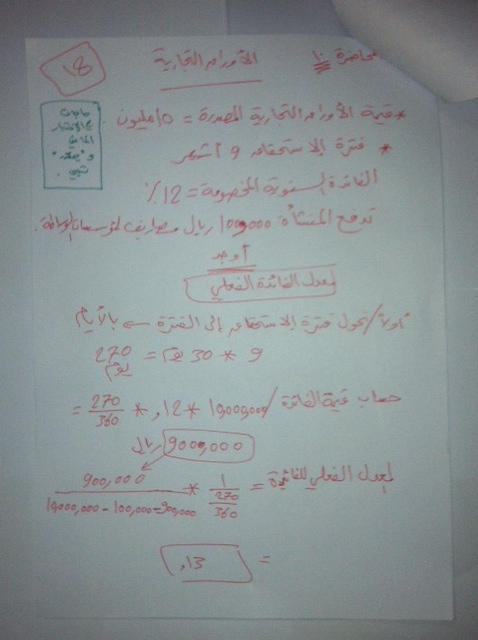 محاضرة ١٠
18
الأوراق التجارية
* قيمة الأوراق التجارية المصدرة = 10 مليون
* فترة الاستحقاق 9 أشهر
الفائدة السنوية المخصومة = 12 ٪
تدفع المنشأة 100,000 ريال مصاريف لمؤسسات الوساطة.
أوجد
لمعدل الفائدة الفعلي
أولاً / نحول فترة الاستحقاق إلى الفترة ← بالأيام
9 * 30 يوم = 270 يوم
حساب قيمة الفائدة / 10,000,000 * 12, * 270/360 =
9000,000 ريال
لمعدل الفعلي للفائدة = 1/(270/360) * 900,000/(10,000,000 - 100,000 - 900,000)
= 13,